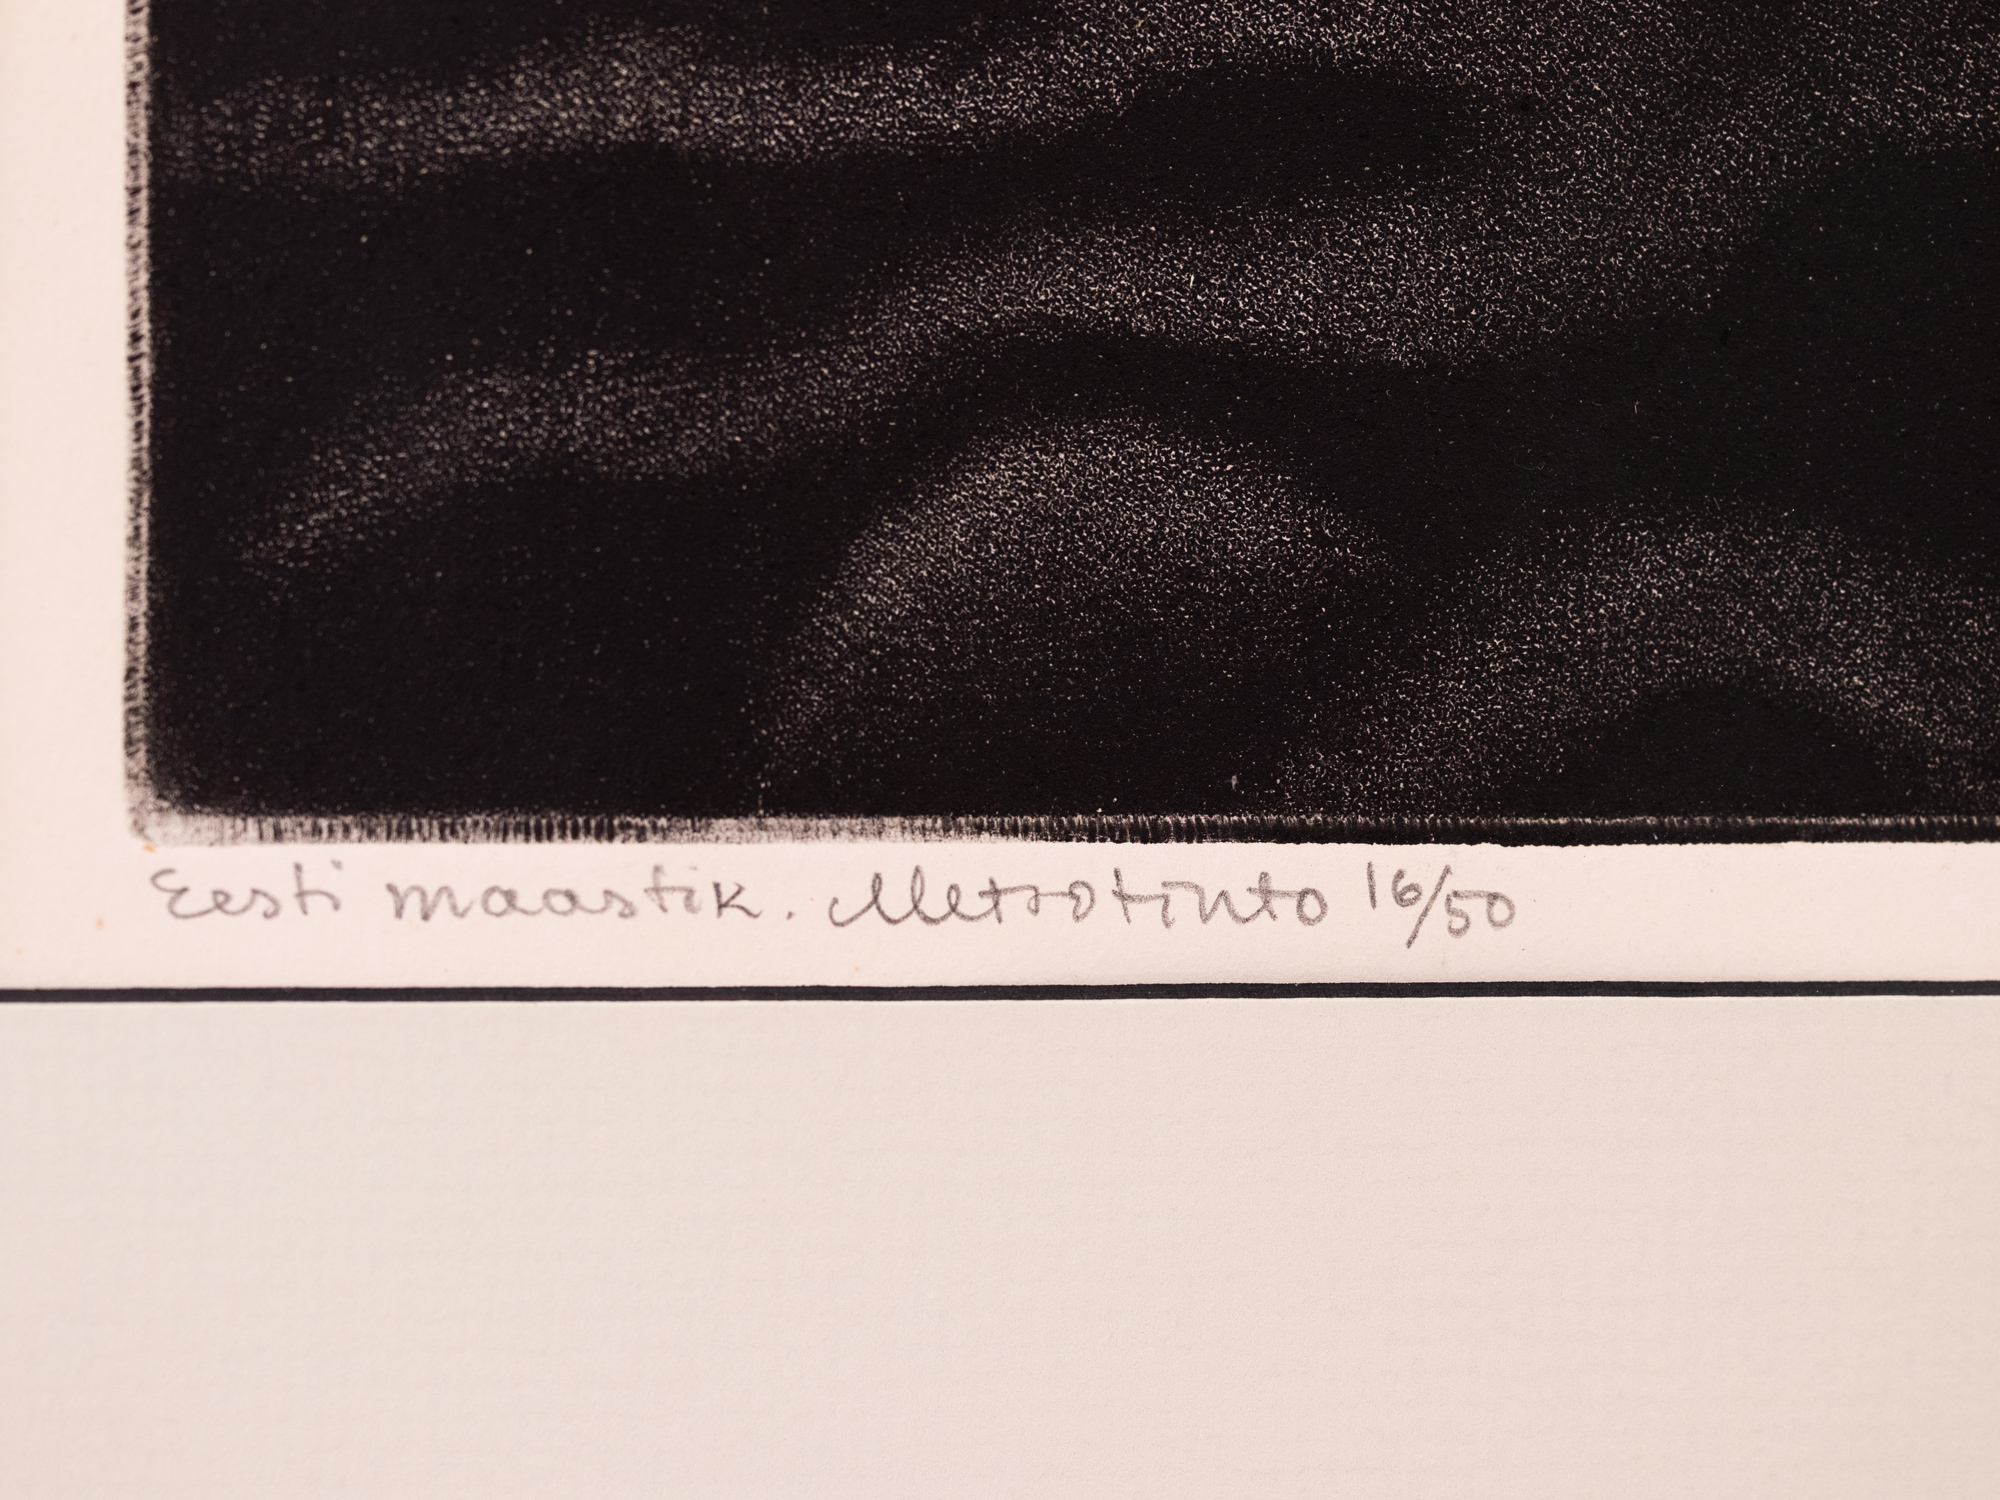 Eesti maastik. Metsotinto 16/50